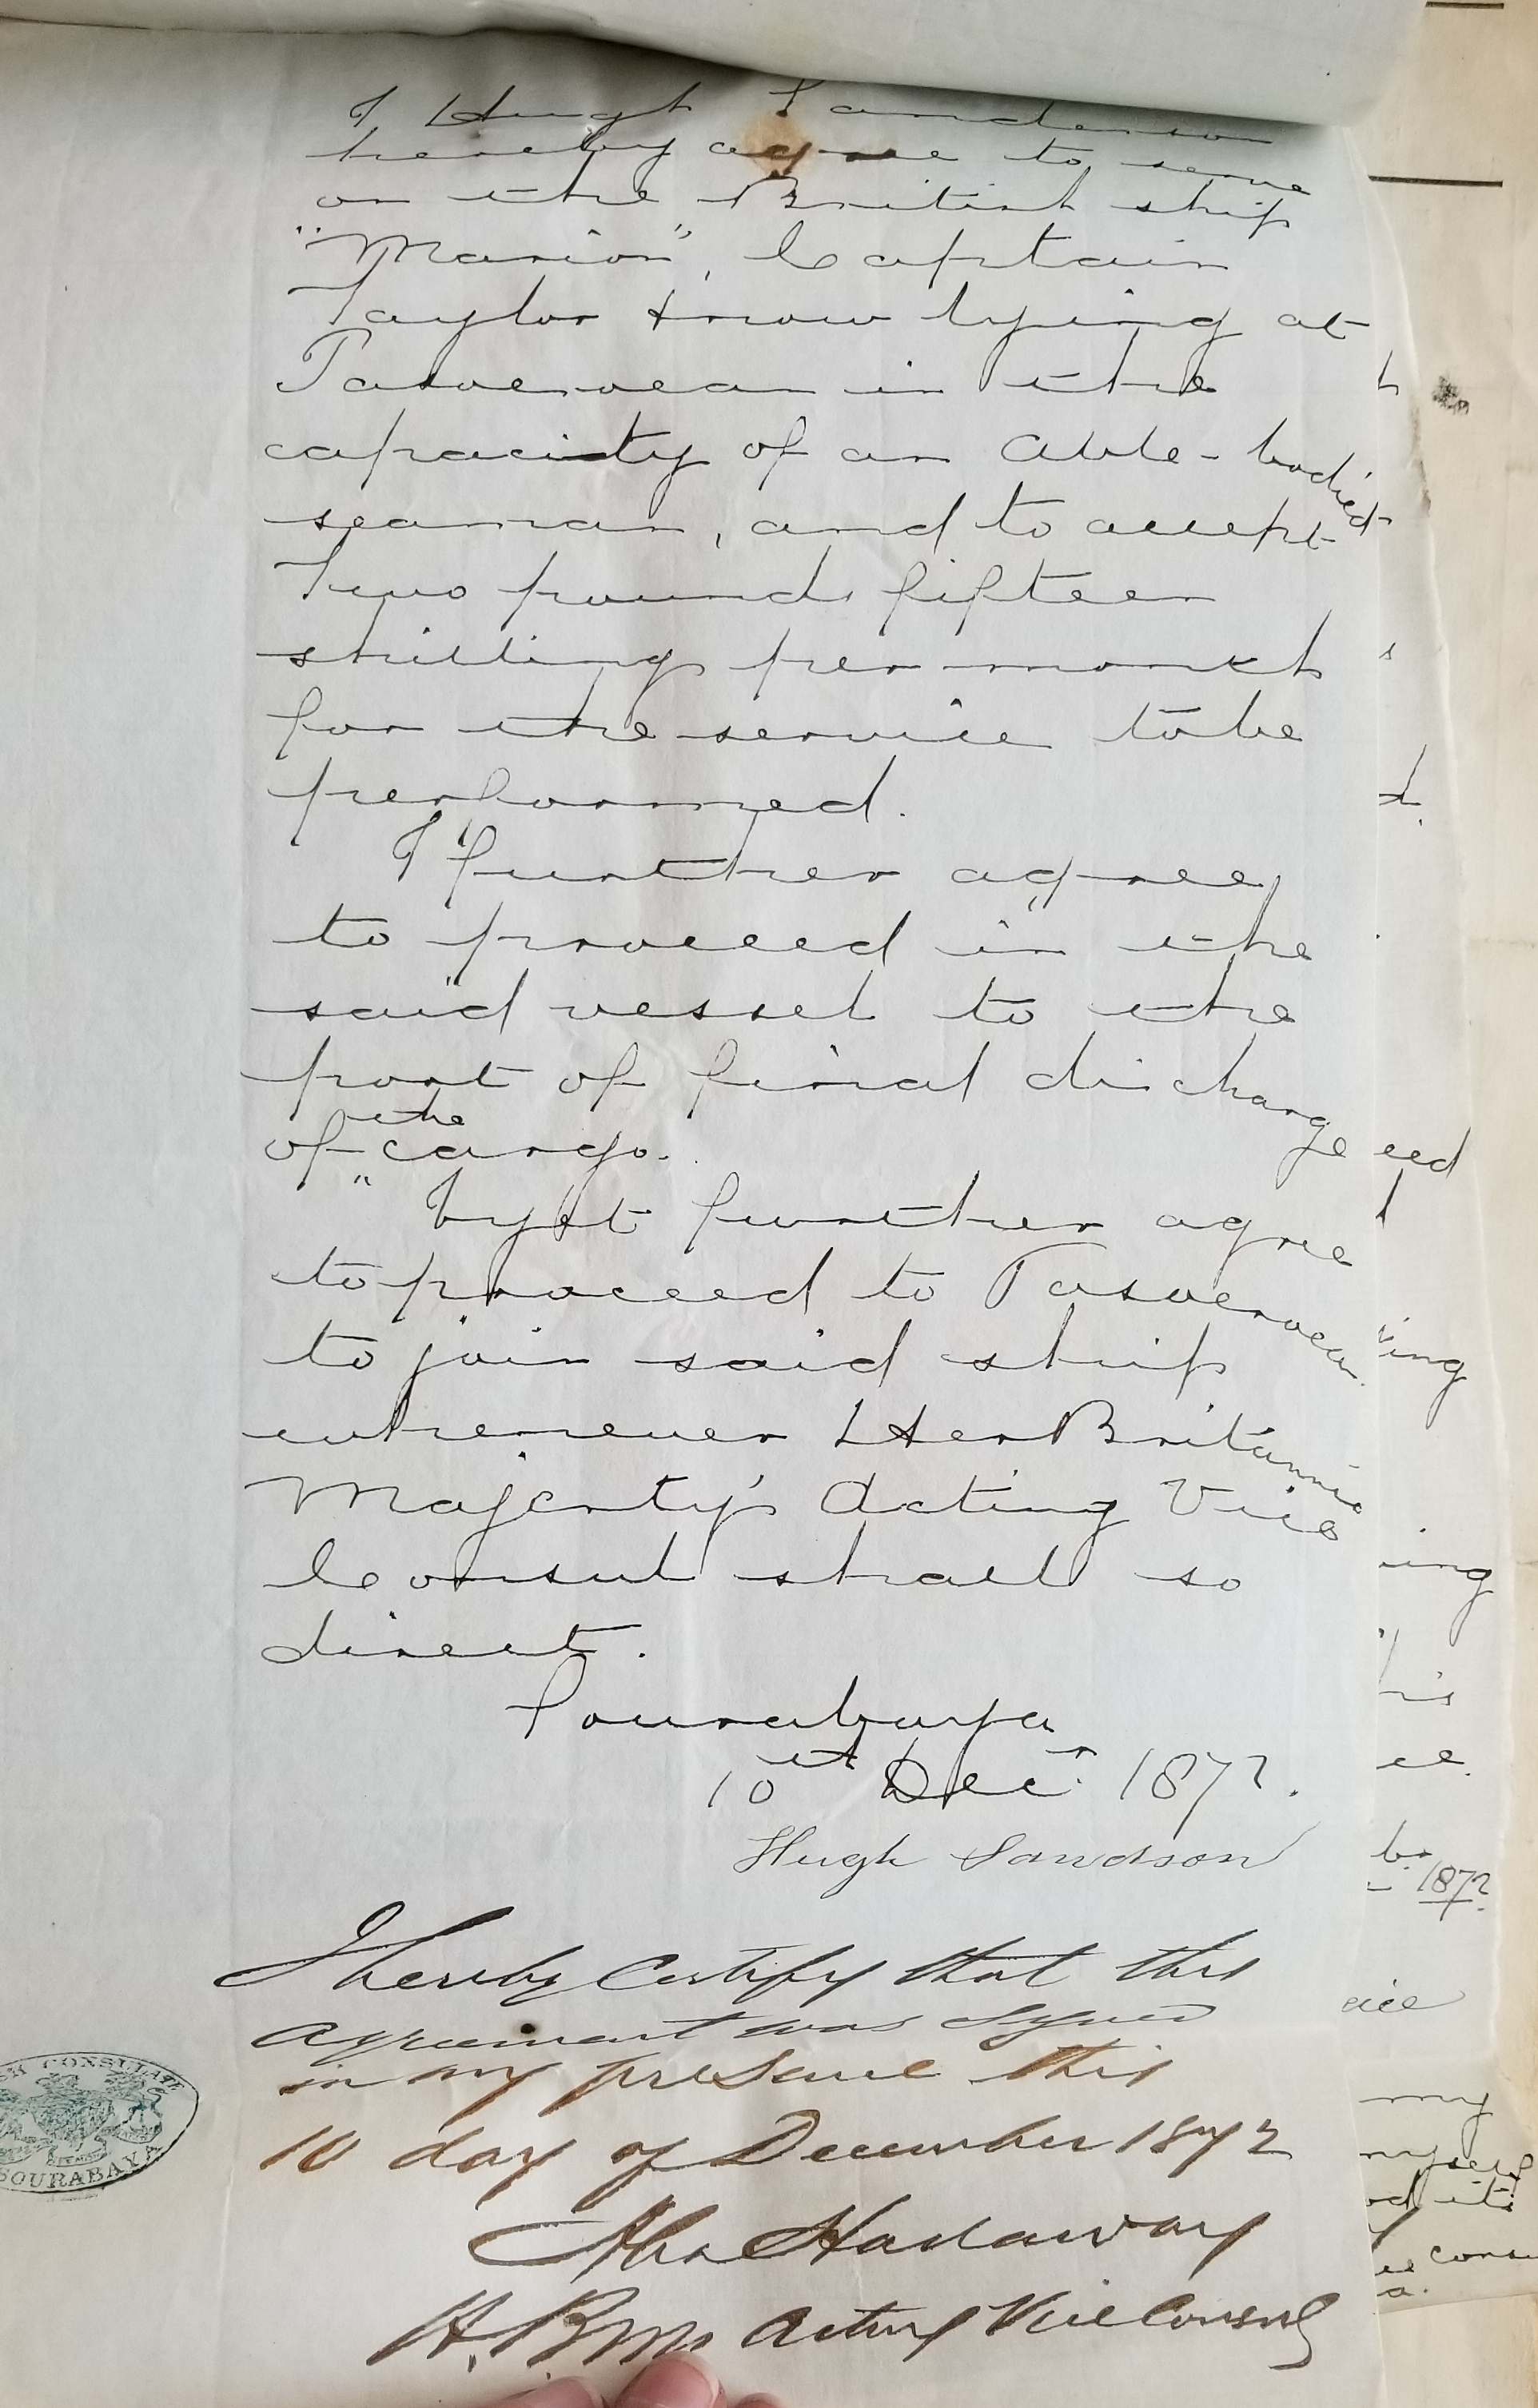 I Hugh Sanderson
hereby agree to serve
on the British ship
"Marion", Captain
Taylor & now lying at
Pasoeroean in the
capacity of an Able-bodied
seaman, and to accept
Two pounds fifteen
shillings per month
for the service to be
performed.
I further agree
to proceed in the
said vessel to the
port of final discharge
of the cargo.
I further agree
to proceed to Pasoeroean
to join said ship
whenever Her Britannic
Majesty's Acting Vice
Consul shall so
direct.
Sourabaya
10th Decr. 1872.
Hugh Sandson
I hereby Certify that this
agreement was signed
in my presence this
10 day of December 1872
Hadaway
H.B.M. Acting Vice Consul
CONSULATE
SOURABAYA
eed
ing
ing
1872
my
myself